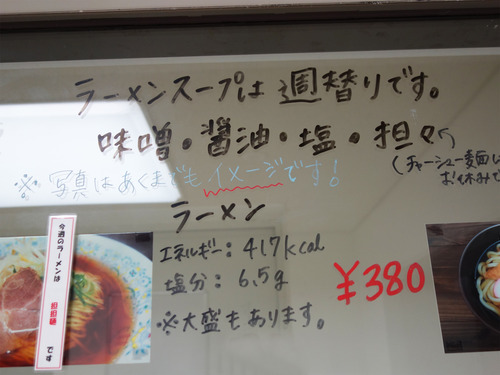 ラーメンスープは週替りです。
味噌・醤油・塩・担々
(チャーシュー麺は
お休みで
※写真はあくまでもイメージです!
ラーメン
エネルギー:417kcal
塩分:6.5g
¥380
※大盛もあります。
今週のラーメンは 担担麺 です